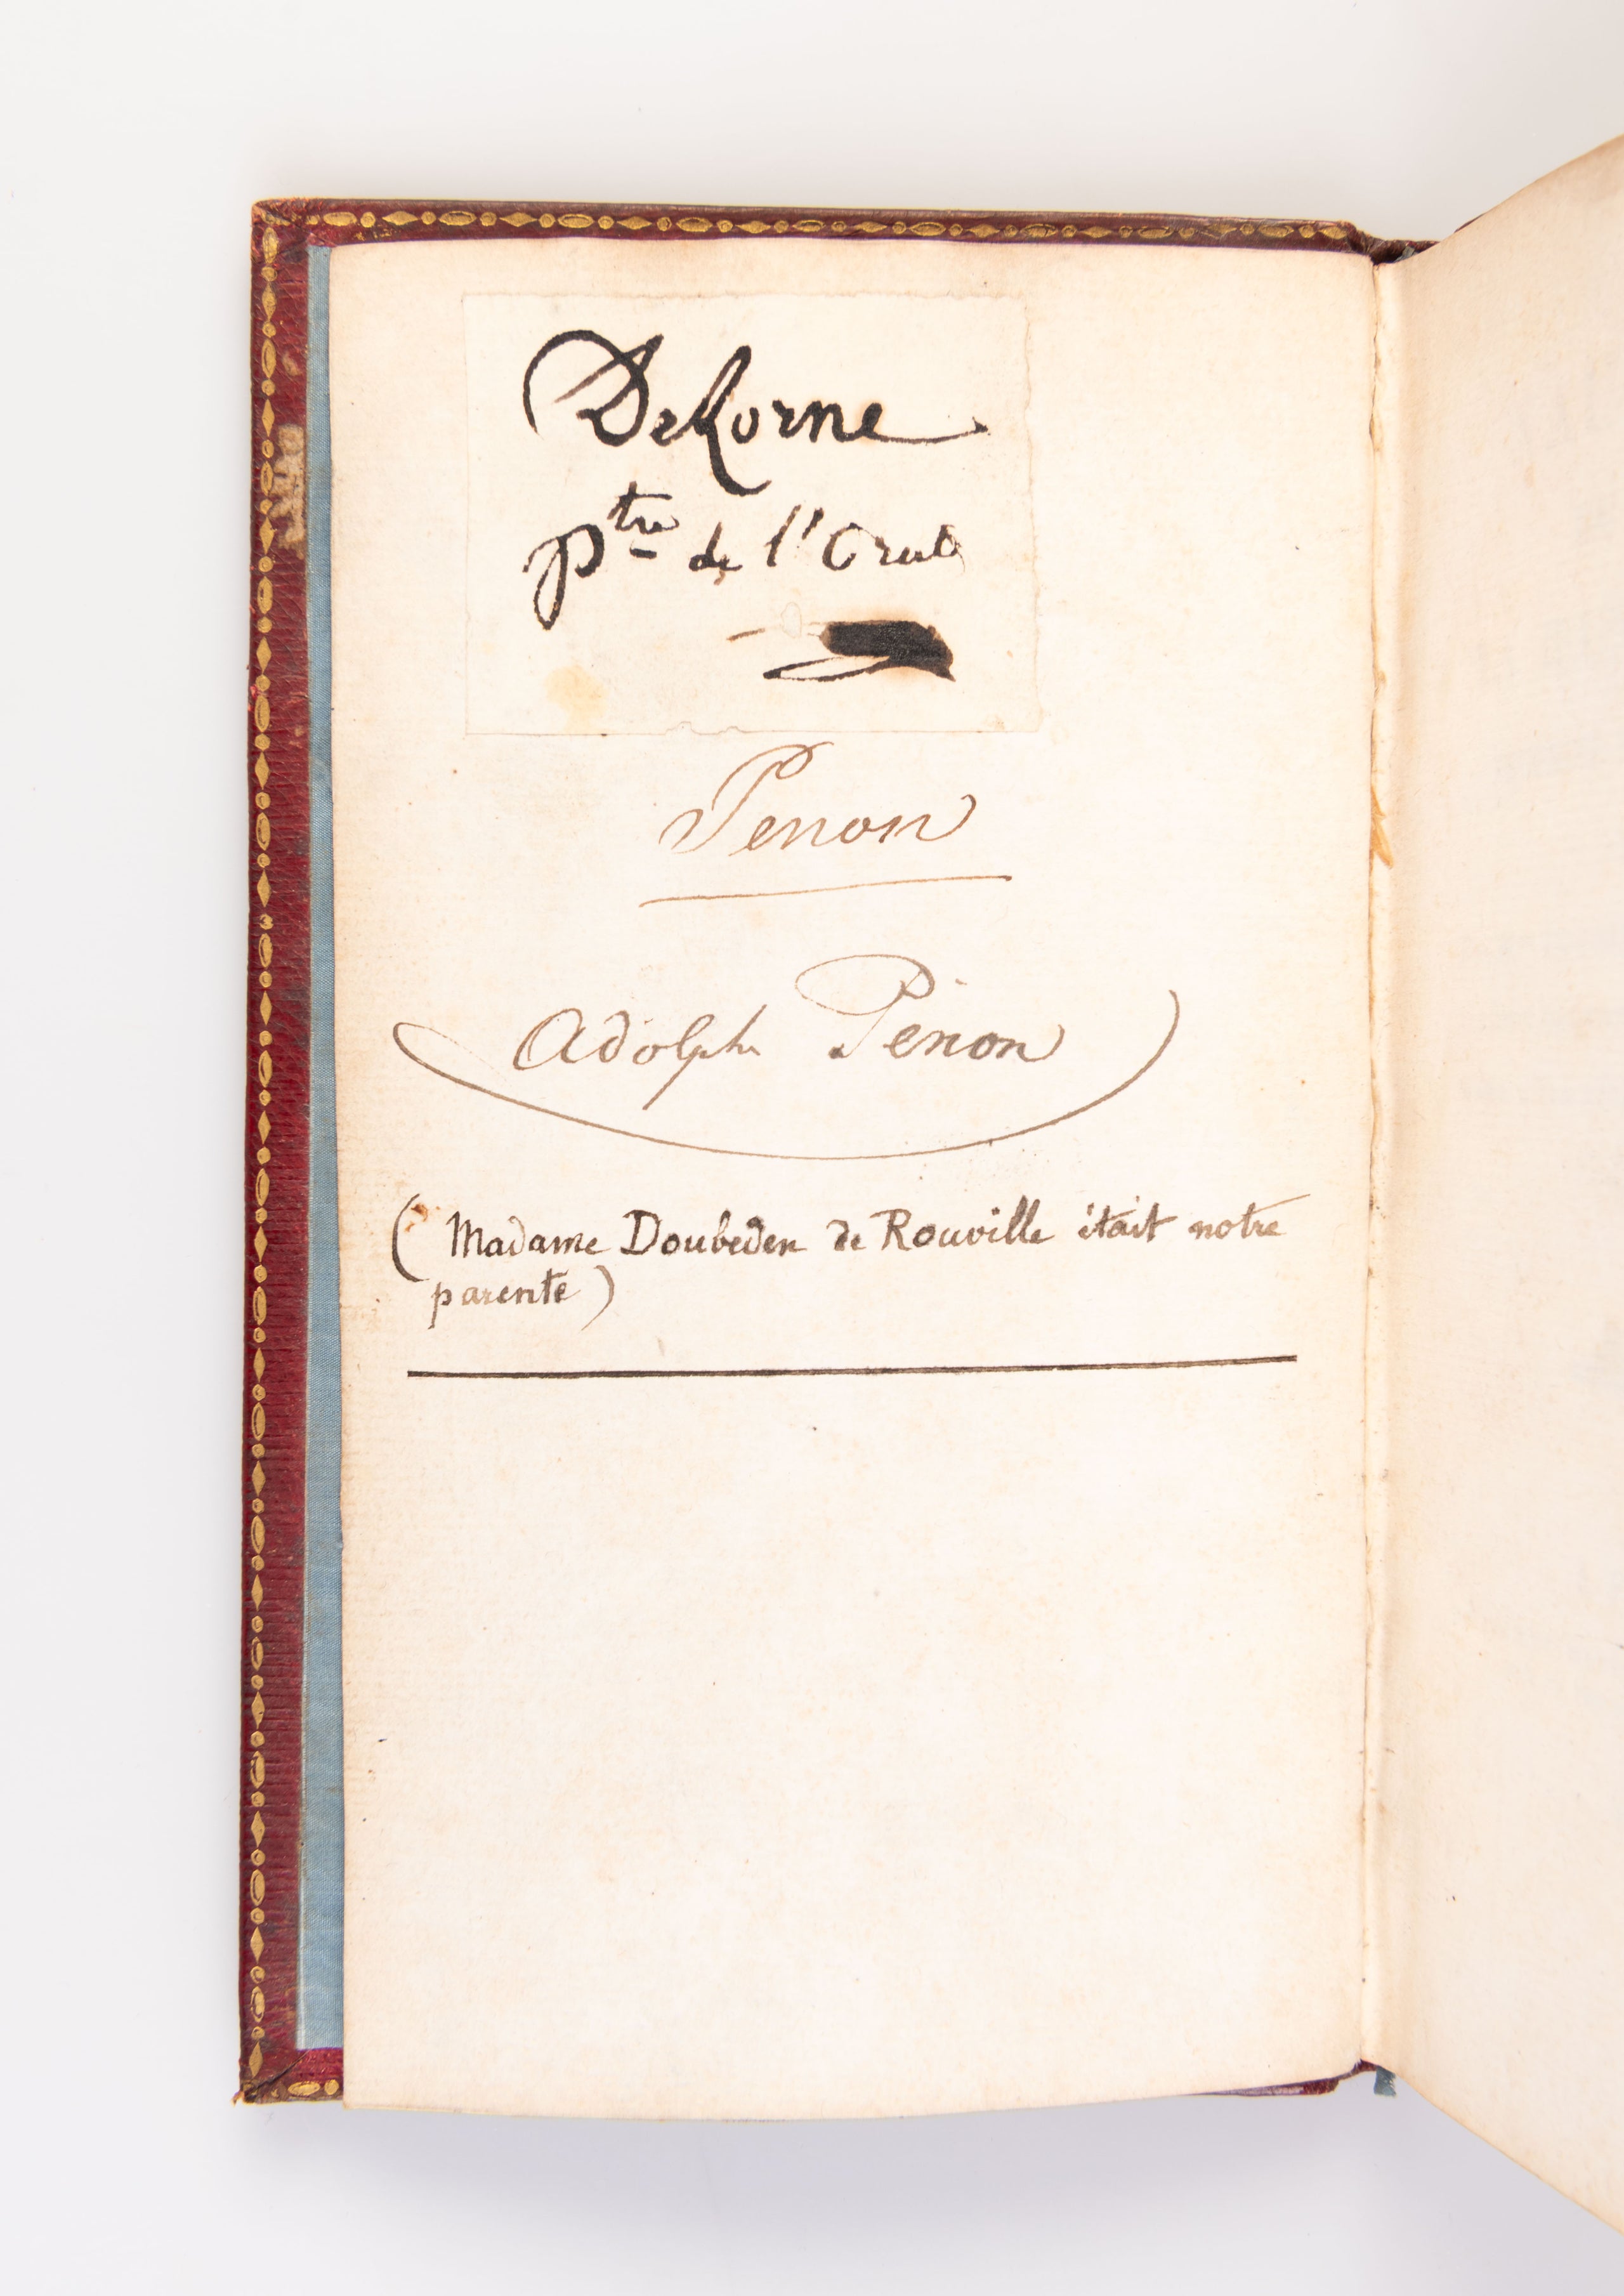 DeLorne
ptre de l'Orat
Penon
Adolphe Penon
( Madame Doubeden de Rouville était notre
parente )